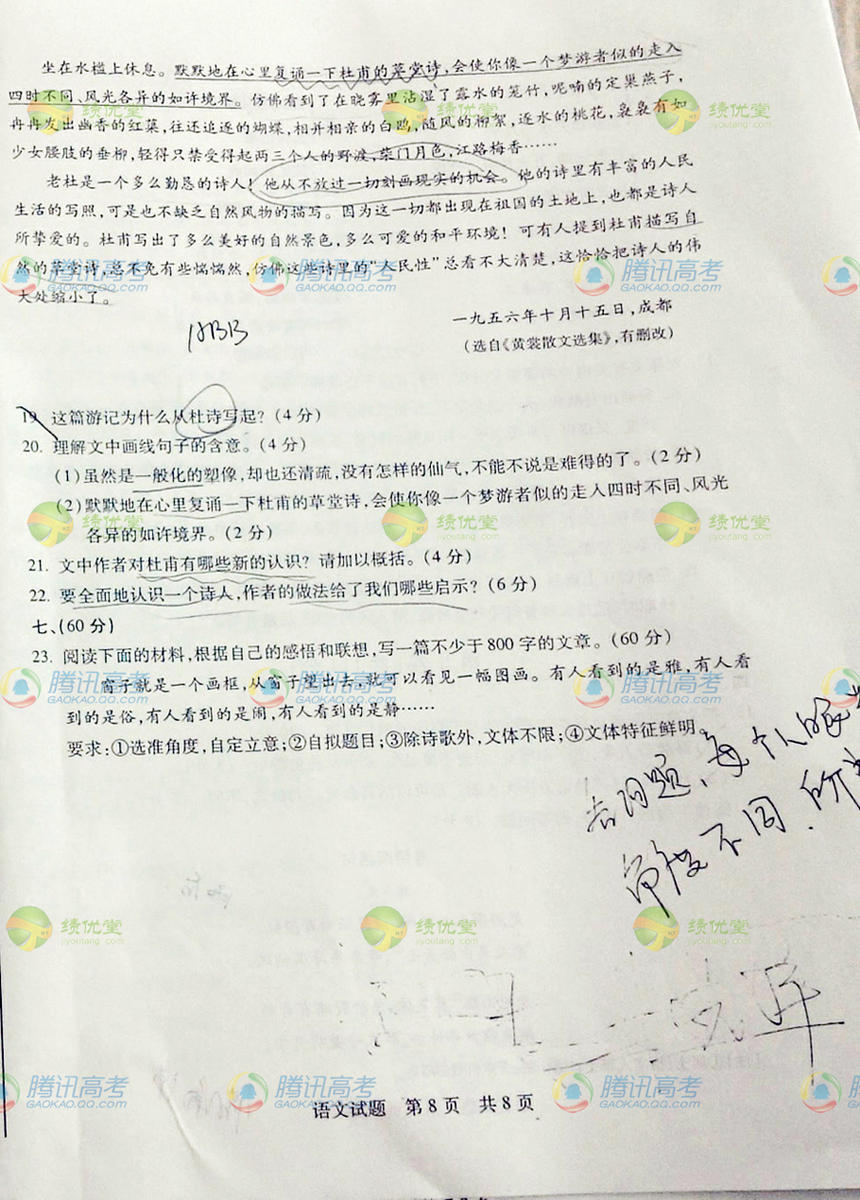 坐在水槛上休息。默默地在心里复诵一下杜甫的草堂诗,会使你像一个梦游者似的走入
四时不同、风光各异的如许境界。仿佛看到了在晓雾里沾湿了露水的笼竹,呢喃的定巢燕子,
冉冉发出幽香的红蕖,往还追逐的蝴蝶,相并相亲的白鸥,随风的柳絮,逐水的桃花,袅袅有如
少女腰肢的垂柳,轻得只禁受得起两三个人的野渡,柴门月色,江路梅香……
老杜是一个多么勤恳的诗人!他从不放过一切刻画现实的机会。他的诗里有丰富的人民
生活的写照,可是也不缺乏自然风物的描写。因为这一切都出现在祖国的土地上,也都是诗人
所挚爱的。杜甫写出了多么美好的自然景色,多么可爱的和平环境!可有人提到杜甫描写自
然的草堂诗,总不免有些惴惴然,仿佛这些诗里的“人民性”总看不大清楚,这恰恰把诗人的伟
大处缩小了。
一九五六年十月十五日,成都
(选自《黄裳散文选集》,有删改)
19. 这篇游记为什么从杜诗写起?(4 分)
20. 理解文中画线句子的含意。(4 分)
(1)虽然是一般化的塑像,却也还清疏,没有怎样的仙气,不能不说是难得的了。(2 分)
(2)默默地在心里复诵一下杜甫的草堂诗,会使你像一个梦游者似的走入四时不同、风光
各异的如许境界。(2 分)
21. 文中作者对杜甫有哪些新的认识?请加以概括。(4 分)
22. 要全面地认识一个诗人,作者的做法给了我们哪些启示?(6 分)
七、(60 分)
23. 阅读下面的材料,根据自己的感悟和联想,写一篇不少于 800 字的文章。(60 分)
窗子就是一个画框,从窗子望出去,就可以看见一幅图画。有人看到的是雅,有人看
到的是俗,有人看到的是闹,有人看到的是静……
要求:①选准角度,自定立意;②自拟题目;③除诗歌外,文体不限;④文体特征鲜明。
看问题、每个人的
角度不同,所
绩优堂
jiyoutang.com
腾讯高考
GAOKAO.QQ.COM
语文试题 第 8 页 共 8 页